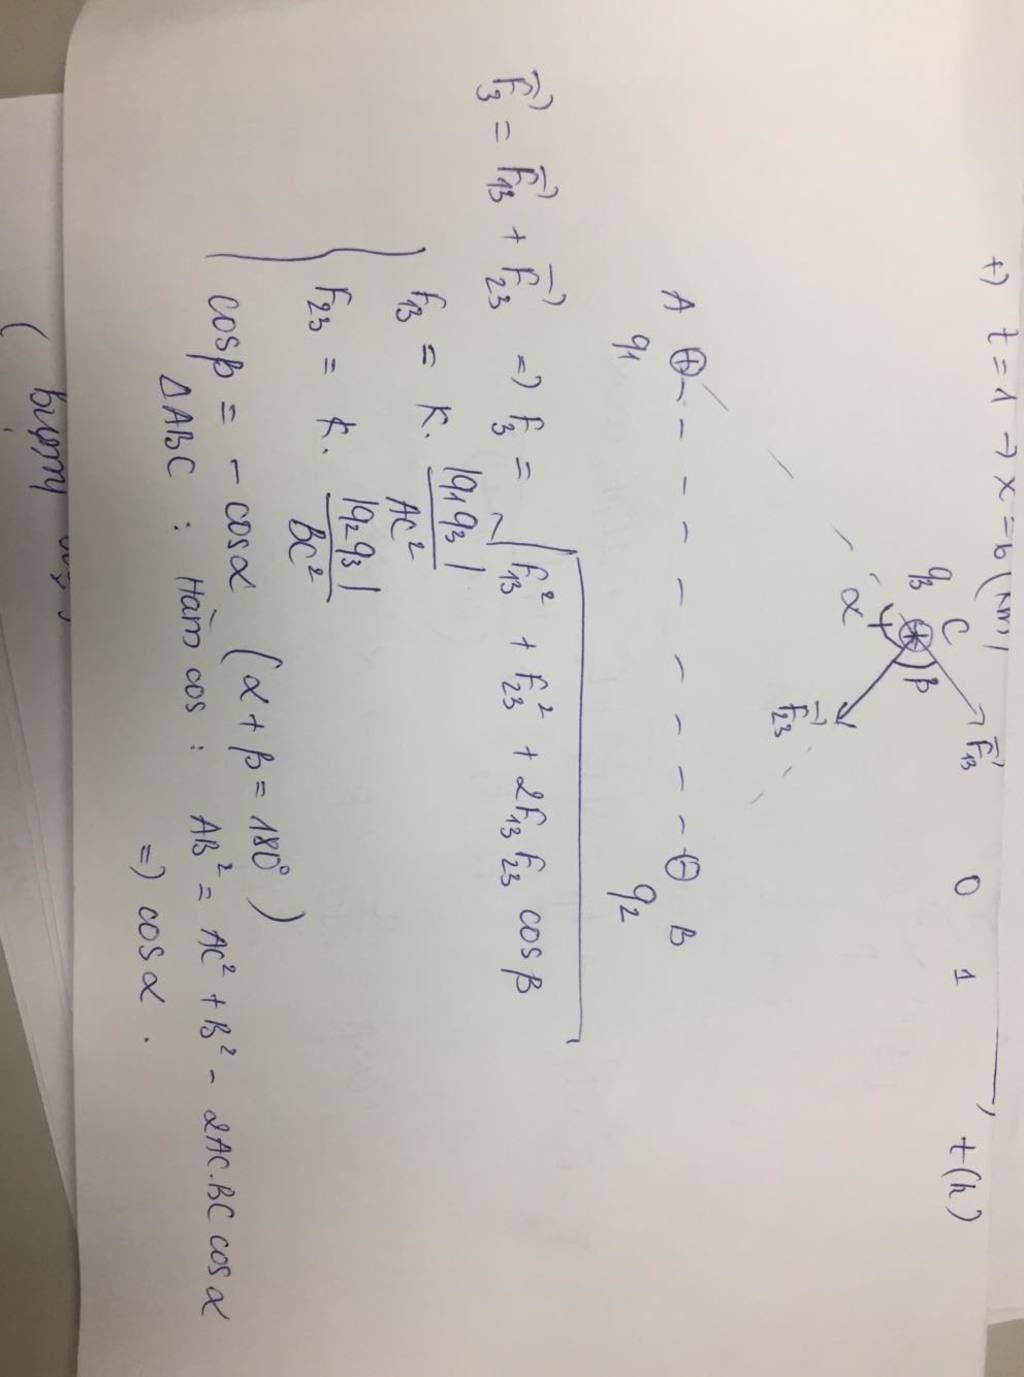 +) t = 1 → x = 6 (km)
0 1 t(h)
C F⃗13
q3 β
α
F⃗23
A ⊕ ⊖ B
q1 q2
F⃗3 = F⃗13 + F⃗23 => F3 = √(F13² + F23² + 2F13 F23 cosβ)
F13 = K. |q1q3| / AC²
F23 = K. |q2q3| / BC²
cosβ = - cosα (α + β = 180°)
ΔABC : Hàm cos : AB² = AC² + B² - 2AC.BC cosα
=> cosα .